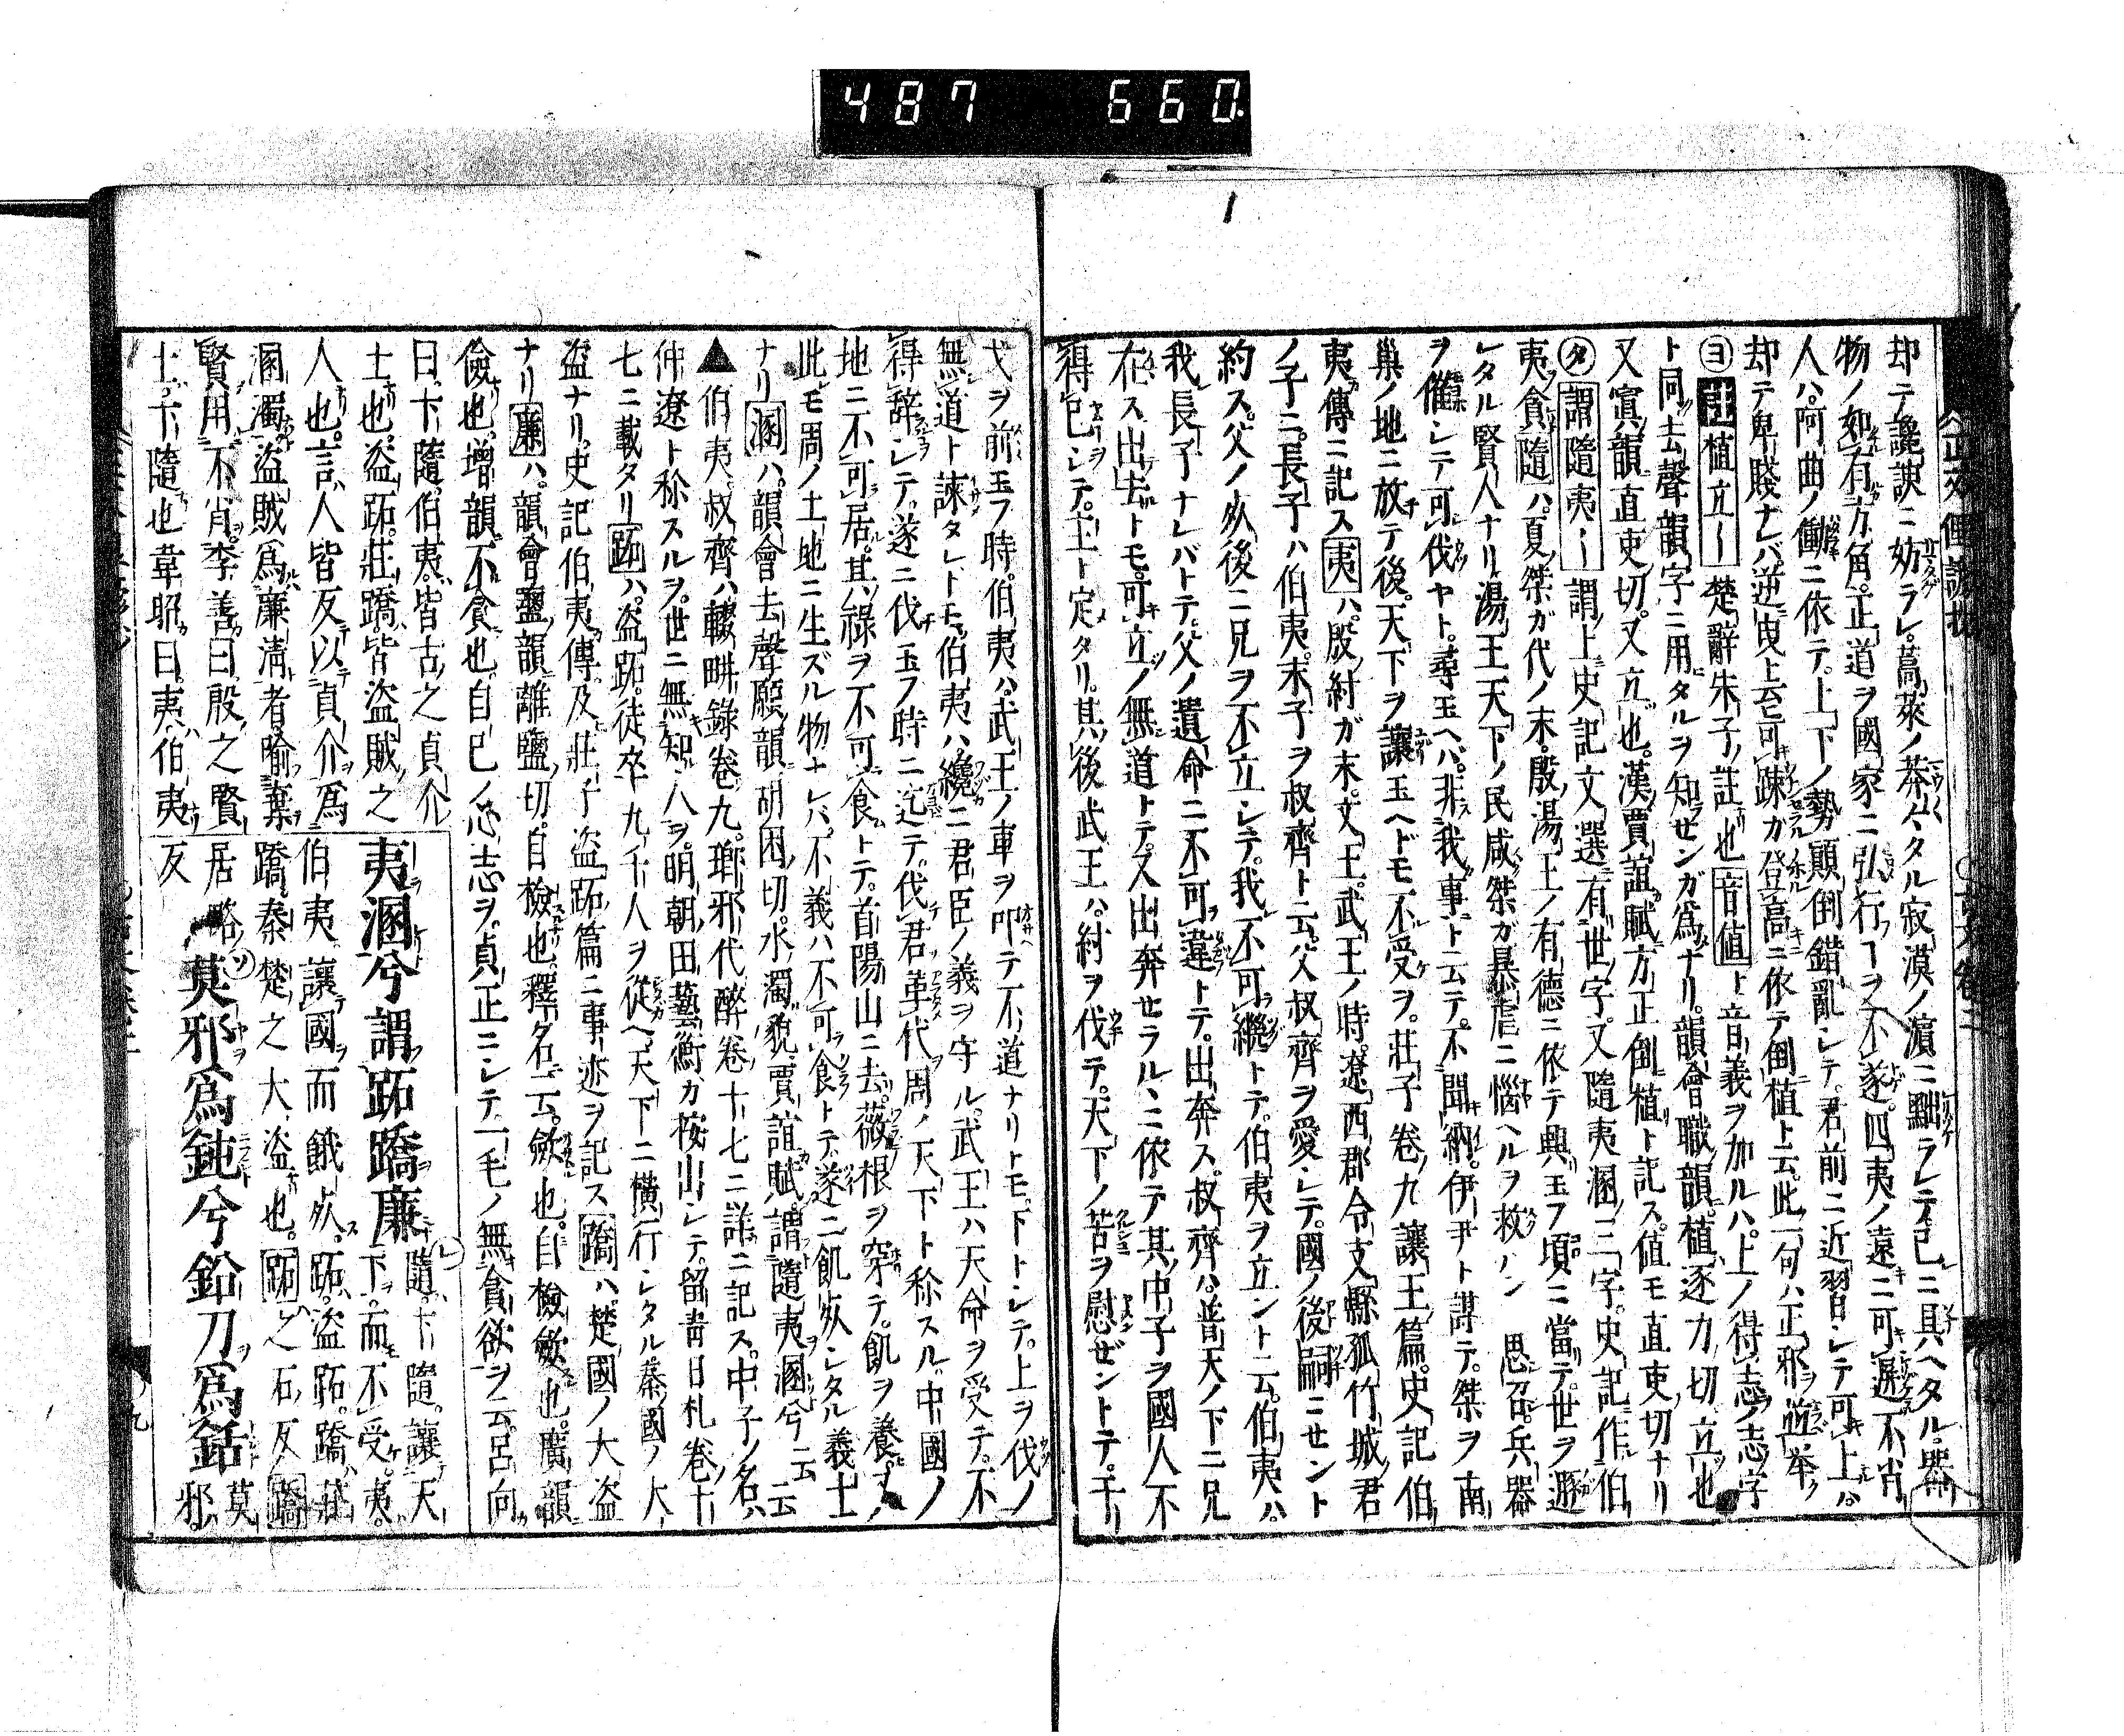 487 660
却テ讒諛ニ妨ラレ。蒿萊ノ茶々タル寂漠ノ濵ニ黜ラレテ己ニ具ヘタル。器
物ノ如有方角。正道ヲ國家ニ弘行ヿヲ不遂。四夷ノ遠ニ可遯。不肖
人ハ。阿曲ノ働ニ依テ。上下ノ勢顚倒錯亂シテ。君前ニ近習シテ可上ハ。
却テ卑賤ナレバ。逆曳上云。可踈ガ登高ニ依テ倒植ト云。此一句ハ正邪ヲ遊挙ノ
ヨ 註植立〡 楚辭朱子ノ註也 音値ト音義ヲ加ルハ。上ノ得志ノ志ノ字
ト同ク去聲韻字ニ用タルヲ知センガ爲ナリ。韻會職韻。植ハ逐力切立也
又寘韻直吏切。又立也。漢賈誼賦方正倒植ト記ス。値モ直吏切ナリ
タ 謂隨夷〡 謂上史記文選有世字。又隨夷溷三字。史記作伯
夷貪隨ハ。夏桀ガ代ノ末。殷湯王ノ有德ニ依テ興玉フ頃ニ當テ。世ヲ遯
レタル賢人ナリ湯王天下ノ民咸桀ガ暴虐ニ惱ヘルヲ救ハン 思召。兵器
ヲ催シテ可伐ヤト。尋玉ヘバ。非我事ト云テ。不聞納。伊尹ト謀テ。桀ヲ南
巢ノ地ニ放テ後。天下ヲ讓玉ヘドモ不受ヲ。莊子卷九讓王篇。史記伯
夷傳ニ記ス 夷ハ。殷紂ガ末。文王。武王ノ時。遼西郡令支縣孤竹城君
ノ子ニ。長子ハ伯夷。末子ヲ叔齊ト云。父叔齊ヲ愛シテ。國ノ後嗣ニセント
約ス。父ノ死後ニ兄ヲ不立シテ。我不可繼トテ。伯夷ヲ立ント云。伯夷ハ。
我長子ナレバトテ。父ノ遺命ニ不可違トテ。出奔ス。叔齊ハ。普天ノ下ニ兄
在ス。出去トモ。可立ノ無道トテ。又出奔セラル丶ニ依テ其中子ヲ國人不
得已シテ。王ト定タリ。其後武王ハ。紂ヲ伐テ。天下ノ苦ヲ慰ゼントテ。干
戈ヲ前玉フ時。伯夷ハ。武王ノ車ヲ叩テ不道ナリトモ。下トシテ。上ヲ伐ノ
無道ト諫タレトモ。伯夷ハ纔ニ君臣ノ義ヲ守ル。武王ハ天命ヲ受テ。不
得辞シテ。遂ニ伐玉フ時ニ迄テ。伐君革代周ノ天下ト称スル。中國ノ
地ニ不可居。其ハ祿ヲ不可食トテ。首陽山ニ去。薇根ヲ穿テ。飢ヲ養。又
此モ周ノ土地ニ生ズル物ナレバ。不義ハ不可食トテ。遂ニ飢死シタル義士
ナリ 溷ハ。韻會去聲願韻。胡困切。水濁貌。賈誼賦。謂隨夷溷兮云云
▲伯夷。叔齊ハ輟畊錄卷九。瑯邪代醉卷十七ニ詳ニ記ス。中子ノ名ハ
仲遼ト称スルヲ。世ニ無知人ヲ。明朝田藝衡ガ按出シテ。留青日札卷十
七ニ載タリ 跖ハ。盗跖。徒卒九千人ヲ從ヘ。天下ニ横行シタル秦國ノ大
盗ナリ。史記伯夷傳。及莊子盗跖篇ニ事迹ヲ記ス 蹻ハ。楚國ノ大盗
ナリ 廉ハ。韻會鹽韻離鹽切。自檢也。釋名云。斂也。自檢斂也。廣韻
儉也。增韻不貪也。自己ノ心志ヲ。貞正ニシテ一毛ノ無貪欲ヲ云。呂向
曰。卞隨。伯夷。皆古之貞介
士也。盗跖。莊蹻。皆盗賊之
人也。言人皆反以貞介爲
溷濁。盗賊爲廉清者。喩棄
賢用不肖。李善曰。殷之賢
士。卞隨也韋昭曰。夷。伯夷
夷溷兮謂跖蹻廉 隨。卞隨。讓天
下。而不受。夷。
伯夷讓國而餓死。跖。盗跖。蹻。莊
蹻。秦楚之大盗也。跖之石反 蹻
居略
反 莫邪爲鈍兮鉛刀爲銛 莫
邪。